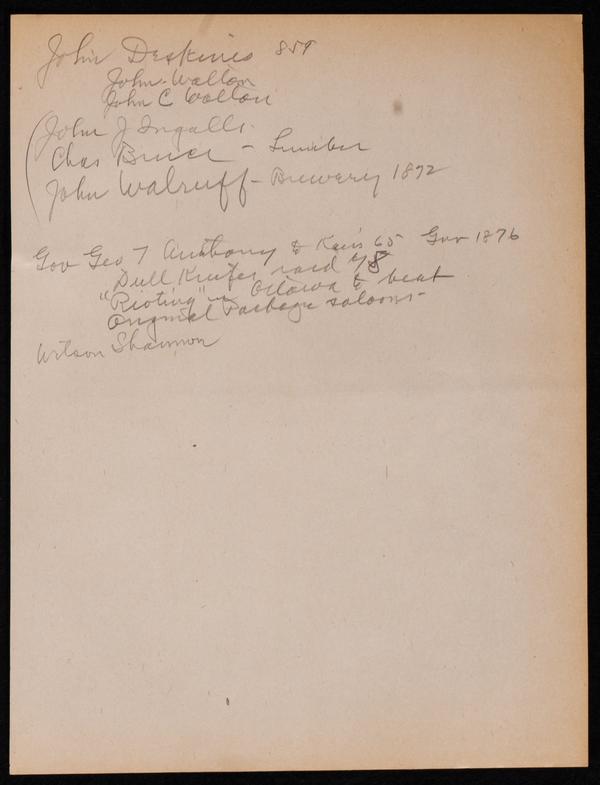 John Deskins 859
John Walton
John C Walton
John J Ingalls
Chas Bruce - Lumber
John Walruff - Brewery 1872
Gov Geo T Anthony to Kans 65 Gov 1876
Dull Knifes raid 78
"Rioting" in Ottawa to beat
Original Package saloons -
Wilson Shannon